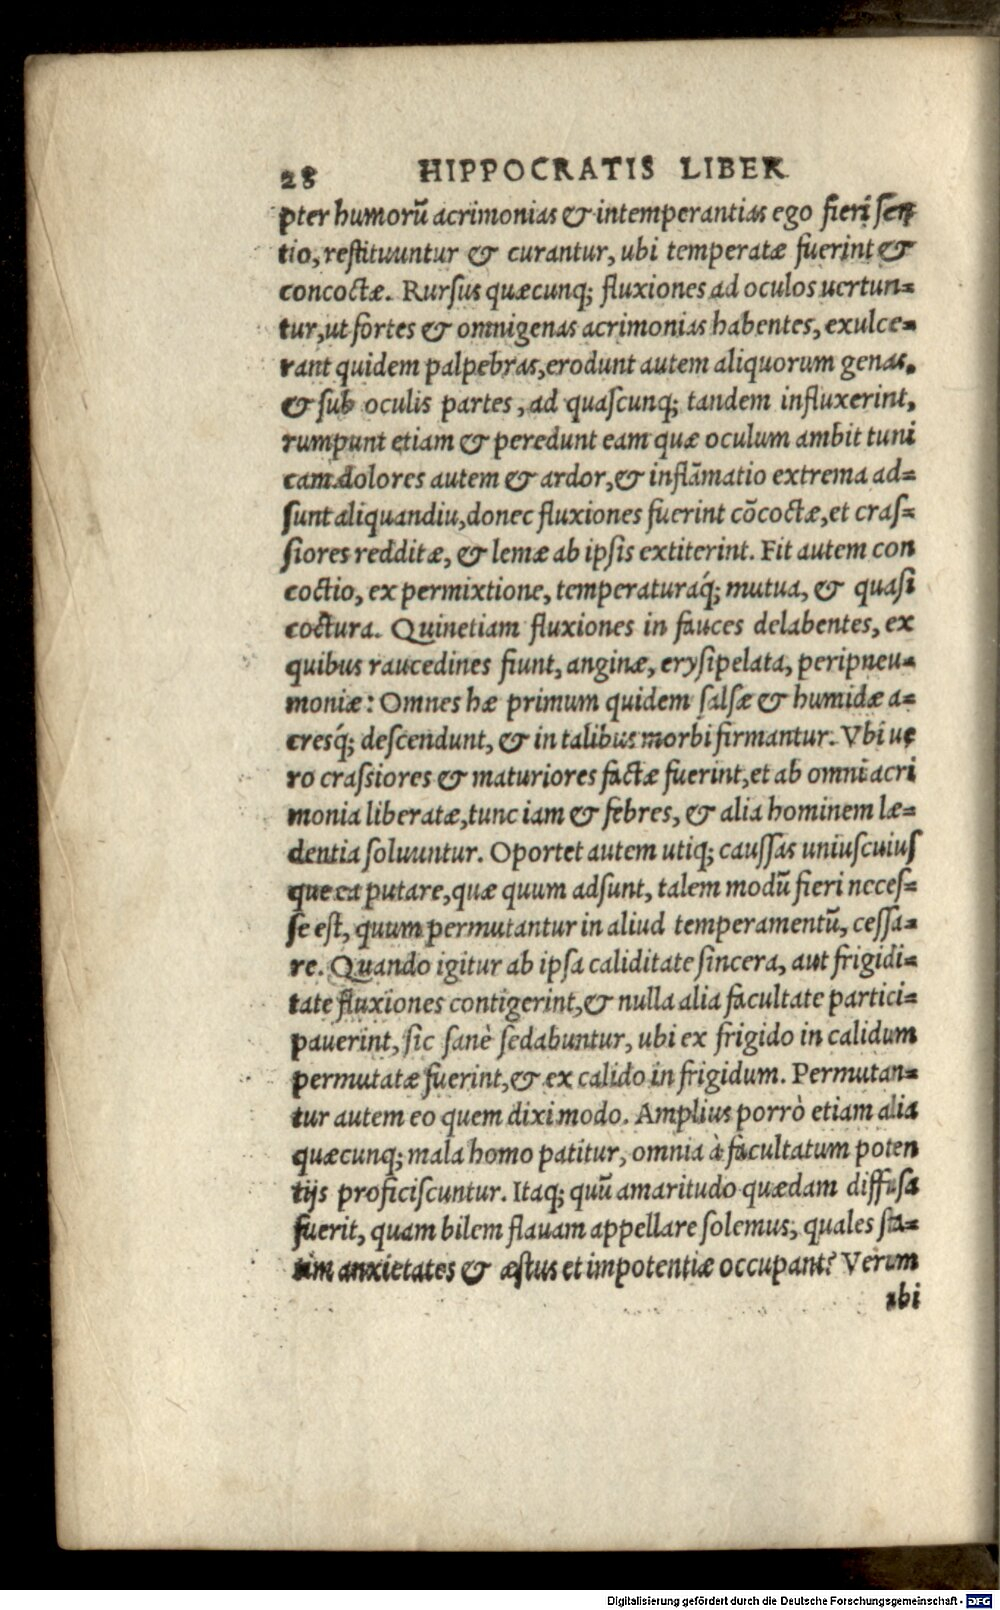 28 HIPPOCRATIS LIBER
pter humorū acrimonias & intemperantias ego fieri sen
tio, restituuntur & curantur, ubi temperatæ fuerint &
concoctæ. Rursus quæcunq; fluxiones ad oculos uertun=
tur, ut fortes & omnigenas acrimonias habentes, exulce=
rant quidem palpebras, erodunt autem aliquorum genas,
& sub oculis partes, ad quascunq; tandem influxerint,
rumpunt etiam & peredunt eam quæ oculum ambit tuni
cam. dolores autem & ardor, & inflāmatio extrema ad=
sunt aliquandiu, donec fluxiones fuerint cōcoctæ, et cras=
siores redditæ, & lemæ ab ipsis extiterint. Fit autem con
coctio, ex permixtione, temperaturaq́; mutua, & quasi
coctura. Quinetiam fluxiones in fauces delabentes, ex
quibus raucedines fiunt, anginæ, erysipelata, peripneu=
moniæ: Omnes hæ primum quidem salsæ & humidæ a=
cresq́; descendunt, & in talibus morbi firmantur. Vbi ue
ro crassiores & maturiores factæ fuerint, et ab omni acri
monia liberatæ, tunc iam & febres, & alia hominem læ=
dentia soluuntur. Oportet autem utiq; caussas uniuscuius
que ea putare, quæ quum adsunt, talem modū fieri neces=
se est, quum permutantur in aliud temperamentū, cessa=
re. Quando igitur ab ipsa caliditate sincera, aut frigidi=
tate fluxiones contigerint, & nulla alia facultate partici=
pauerint, sic sanè sedabuntur, ubi ex frigido in calidum
permutatæ fuerint, & ex calido in frigidum. Permutan=
tur autem eo quem dixi modo. Amplius porrò etiam alia
quæcunq; mala homo patitur, omnia à facultatum poten
tijs proficiscuntur. Itaq; quū amaritudo quædam diffusa
fuerit, quam bilem flauam appellare solemus, quales sta=
tim anxietates & æstus et impotentiæ occupant? Verum
ubi
Digitalisierung gefördert durch die Deutsche Forschungsgemeinschaft - DFG